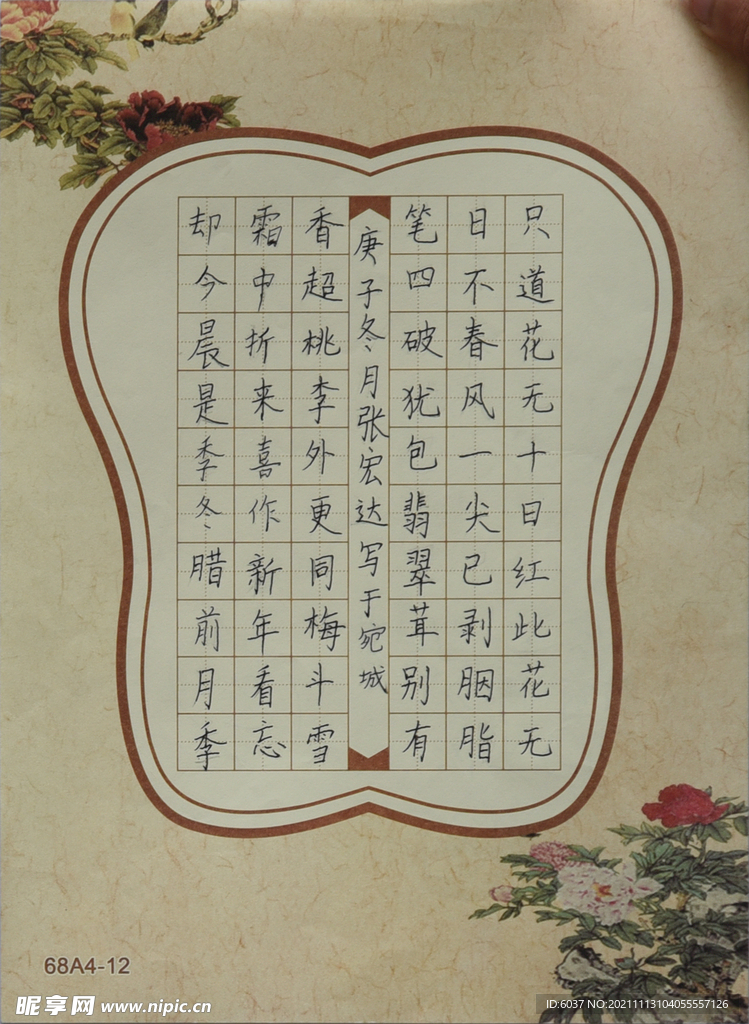 只道花无十日红此花无
日不春风一尖已剥胭脂
笔四破犹包翡翠茸别有
香超桃李外更同梅斗雪
霜中折来喜作新年看忘
却今晨是季冬腊前月季
庚子冬月张宏达写于宛城
68A4-12
昵享网 www.nipic.cn
ID:6037 NO:20211113104055557126